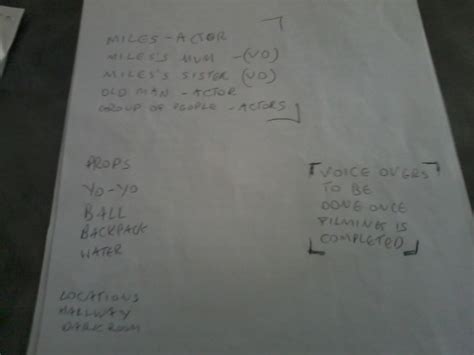 MILES - ACTOR
MILES'S MUM - (VO)
MILES'S SISTER (VO)
OLD MAN - ACTOR
GROUP OF PEOPLE - ACTORS
PROPS
YO-YO
BALL
BACKPACK
WATER
VOICE OVERS
TO BE
DONE ONCE
FILMING IS
COMPLETED
LOCATIONS
HALLWAY
DARK ROOM